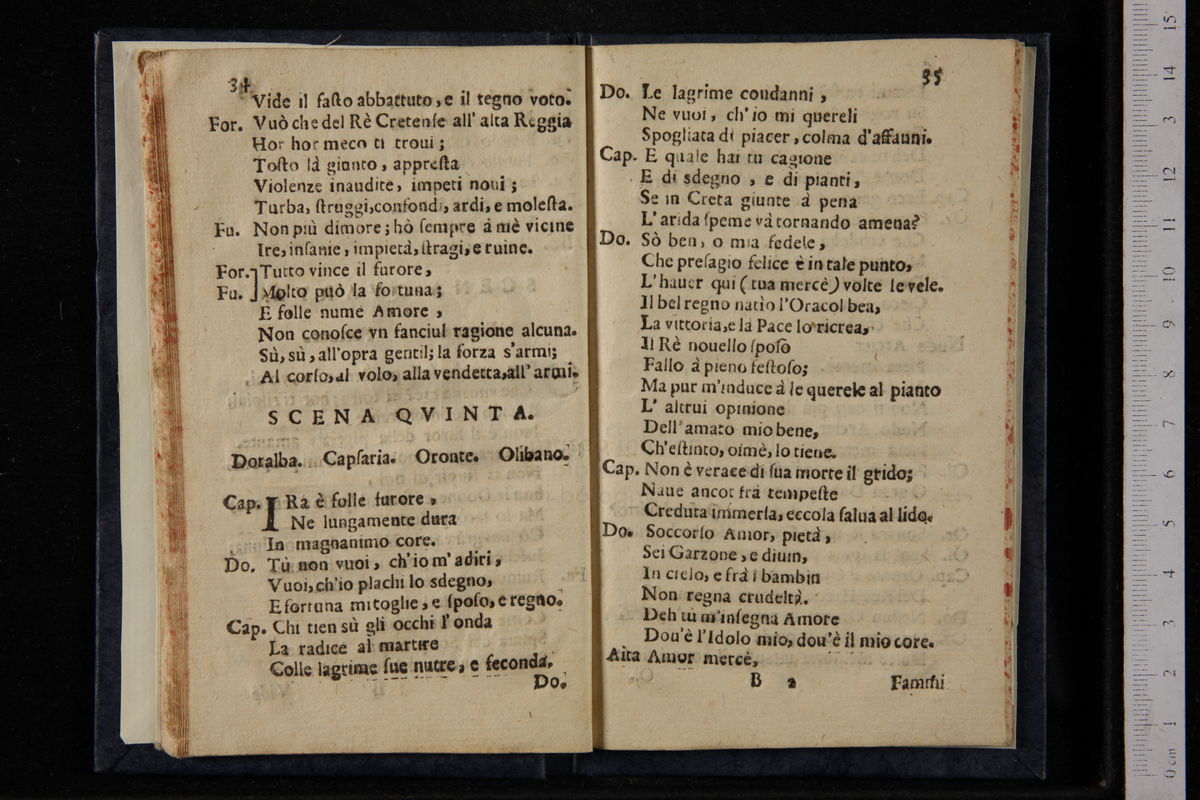 34
Vide il faſto abbattuto, e il regno voto.
For. Vuò che del Rè Cretenſe all' alta Reggia
Hor hor meco ti troui;
Toſto là giunto, appreſta
Violenze inaudite, impeti noui;
Turba, ſtruggi, confondi, ardi, e moleſta.
Fu. Non più dimore; hò ſempre à miè vicine
Ire, inſanie, impietà, ſtragi, e ruine.
For. Tutto vince il furore,
Fu. Molto può la fortuna;
E folle nume Amore,
Non conoſce vn fanciul ragione alcuna.
Sù, sù, all'opra gentil; la forza s'armi;
Al corſo, al volo, alla vendetta, all' armi.
SCENA QVINTA.
Doralba. Capſaria. Oronte. Olibano.
Cap. IRa è folle furore,
Ne lungamente dura
In magnanimo core.
Do. Tù non vuoi, ch'io m'adiri,
Vuoi, ch'io plachi lo sdegno,
E fortuna mi toglie, e ſpoſo, e regno.
Cap. Chi tien sù gli occhi l'onda
La radice al martire
Colle lagrime ſue nutre, e feconda.
Do.
35
Do. Le lagrime condanni,
Ne vuoi, ch'io mi quereli
Spogliata di piacer, colma d'affanni.
Cap. E quale hai tu cagione
E di sdegno, e di pianti,
Se in Creta giunte à pena
L'arida ſpeme và tornando amena?
Do. Sò ben, o mia fedele,
Che preſagio felice è in tale punto,
L'hauer qui (tua mercè) volte le vele.
Il bel regno natìo l'Oracol bea,
La vittoria, e la Pace lo ricrea,
Il Rè nouello ſpoſo
Fallo à pieno feſtoſo;
Ma pur m'induce à le querele al pianto
L' altrui opinione
Dell'amato mio bene,
Ch'eſtinto, oimè, lo tiene.
Cap. Non è verace di ſua morte il grido;
Naue ancor frà tempeſte
Creduta immerſa, eccola ſalua al lido.
Do. Soccorſo Amor, pietà,
Sei Garzone, e diuin,
In cielo, e frà i bambin
Non regna crudeltà.
Deh tù m'inſegna Amore
Dou'è l'Idolo mio, dou'è il mio core.
Aita Amor mercè,
B 2 Fammi